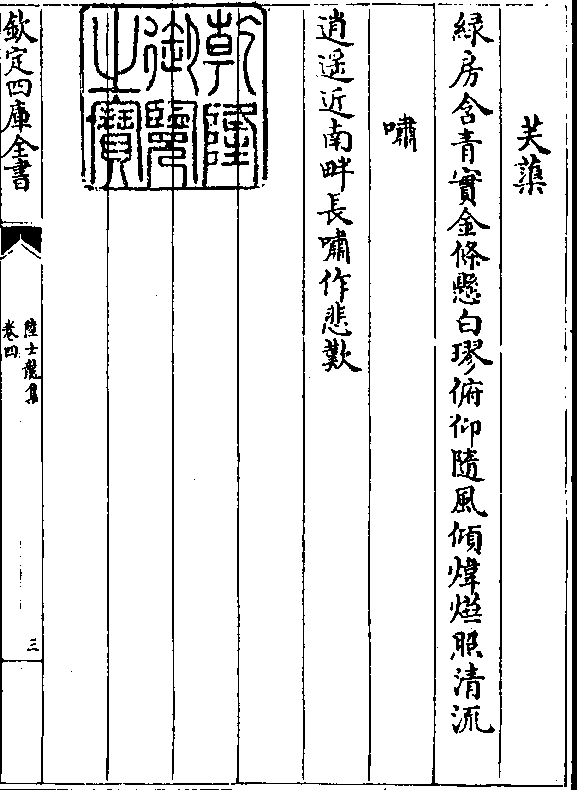 芙蕖
緑房含青實金條懸白璆俯仰隨風傾煒燁照清流
嘯
逍遥近南畔長嘯作悲歎
乾隆
御覽
之寶
欽定四庫全書
陸士龍集
卷四
三